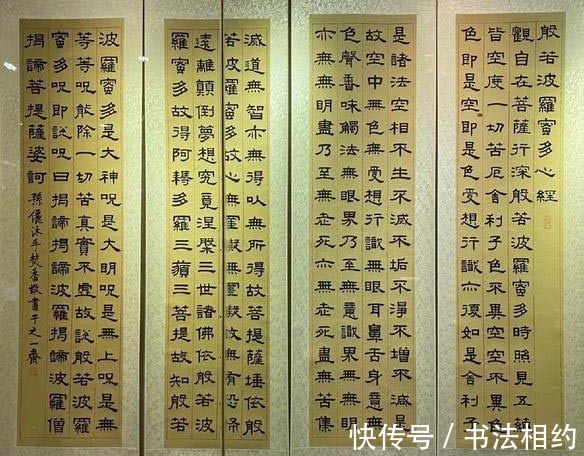 般若波羅蜜多心經
觀自在菩薩行深般若波羅蜜多時照見五蘊
皆空度一切苦厄舍利子色不異空空不異色
色即是空空即是色受想行識亦復如是舍利子
是諸法空相不生不滅不垢不淨不增不減是
故空中無色無受想行識無眼耳鼻舌身意無
色聲香味觸法無眼界乃至無意識界無無明
亦無無明盡乃至無老死亦無老死盡無苦集
滅道無智亦無得以無所得故菩提薩埵依般
若波羅蜜多故心無罣礙無罣礙故無有恐怖
遠離顛倒夢想究竟涅槃三世諸佛依般若波
羅蜜多故得阿耨多羅三藐三菩提故知般若
波羅蜜多是大神咒是大明咒是無上咒是無
等等咒能除一切苦真實不虛故說般若波羅
蜜多咒即說咒曰揭諦揭諦波羅揭諦波羅僧
揭諦菩提薩婆訶 孫儷沐手焚香敬書于之一齋
快传号 / 书法相约